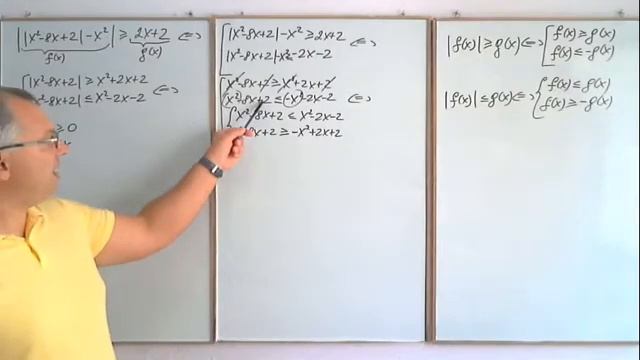 ||x²-8x+2|-x²| ≥ 2x+2 <=>
f(x) g(x)
|x²-8x+2| ≥ x²+2x+2
x²-8x+2| ≤ x²-2x-2 <=>
≥ 0
|x²-8x+2|-x² ≥ 2x+2
|x²-8x+2|-x² ≤ -2x-2 <=>
x²-8x+2 ≥ x²+2x+2
x²-8x+2 ≤ -x²-2x-2 <=>
x²-8x+2 ≤ x²-2x-2
8x+2 ≥ -x²+2x+2
|f(x)| ≥ g(x) <=> [ f(x) ≥ g(x)
f(x) ≤ -g(x)
|f(x)| ≤ g(x) <=> { f(x) ≤ g(x)
f(x) ≥ -g(x)